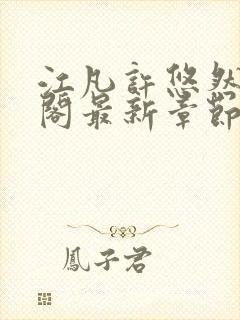 江凡許悠然
閣最新章節
鳳子君